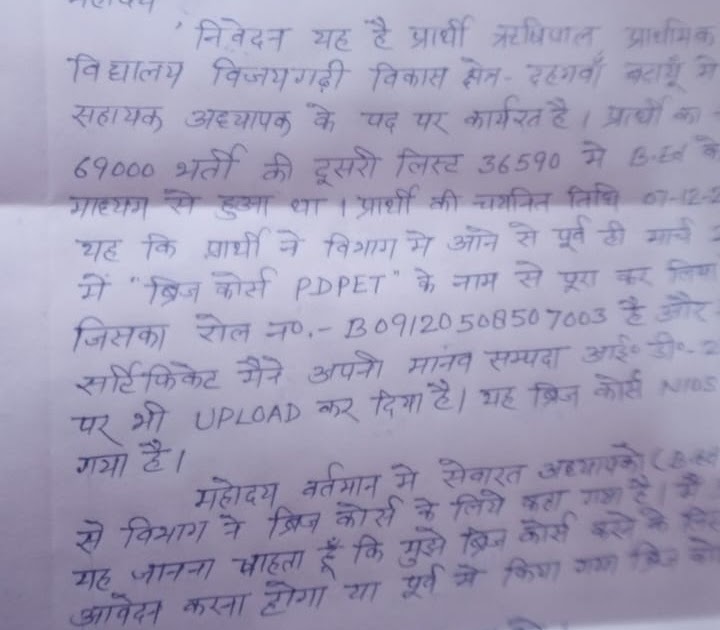 महोदय
निवेदन यह है प्रार्थी ऋषिपाल प्राथमिक
विद्यालय विजयगढ़ी विकास क्षेत्र- दहगवाँ बदायूँ में
सहायक अध्यापक के पद पर कार्यरत है। प्रार्थी का
69000 भर्ती की दूसरी लिस्ट 36590 मे B.Ed के
माध्यम से हुआ था। प्रार्थी की चयनित तिथि 07-12-2
यह कि प्रार्थी ने विभाग मे आने से पूर्व ही मार्च
में "ब्रिज कोर्स PDPET" के नाम से पूरा कर लिया
जिसका रोल न०.- B09120508507003 है और
सर्टिफिकेट मैने अपनी मानव सम्पदा आई० डी०- 2
पर भी UPLOAD कर दिया है। यह ब्रिज कोर्स NIOS
गया है।
महोदय वर्तमान मे सेवारत अध्यापको (B.Ed
से विभाग ने ब्रिज कोर्स के लिये कहा गया है। मै
यह जानना चाहता हूँ कि मुझे ब्रिज कोर्स करने के लिए
आवेदन करना होगा या पूर्व मे किया गया ब्रिज को